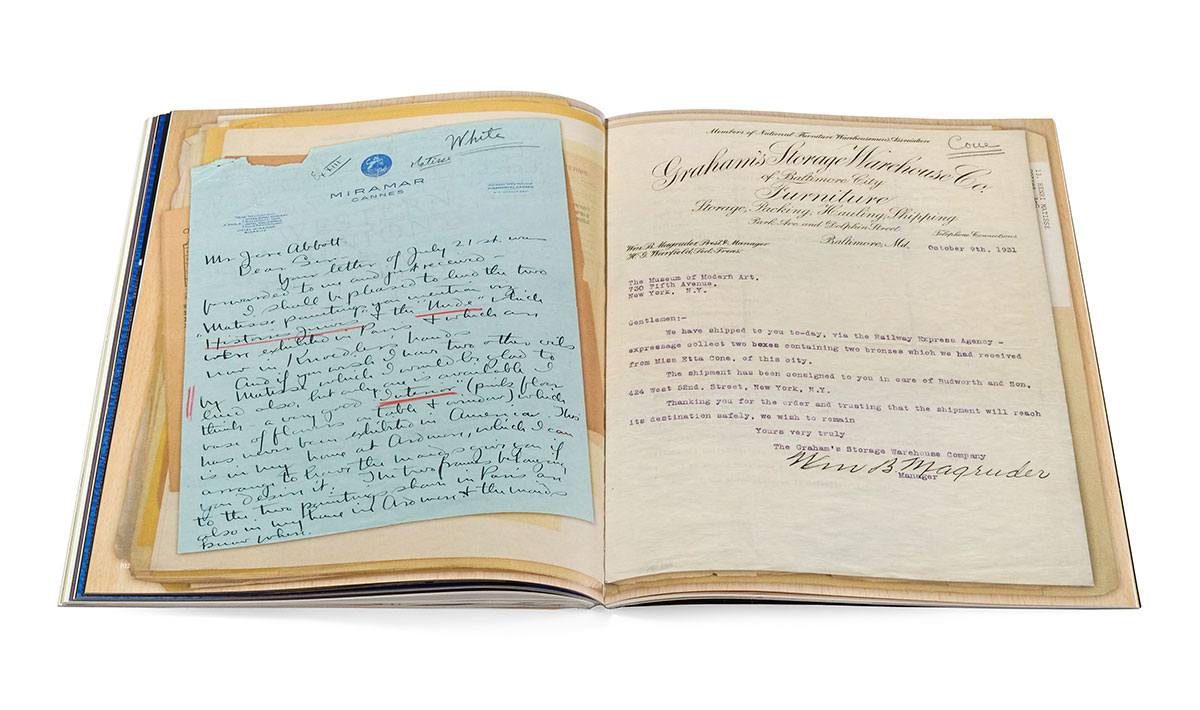 White
Matisse
MIRAMAR
CANNES
Mr Jere Abbott
Dear Sir:
Your letter of July 21st was
forwarded to me and just received -
I shall be pleased to lend the two
Matisse paintings you mention viz
"Histoires Juives" & the "Nude" which
were exhibited in Paris & which are
now in Knoedlers hands
And if you wish I have two other oils
by Matisse which I would be glad to
lend also, but only one is available I
think a very good Interior (pink floor
vase of flowers on table & window) which
has never been exhibited in America. This
is in my home at Ardmore, which I can
arrange to have the maids give you if
you desire it. The two frames belonging
to the two paintings shown in Paris are
also in my home in Ardmore & the maids
know where.
102
Members of National Furniture Warehousemen's Association
Cone
Graham's Storage Warehouse Co.
of Baltimore City
Furniture
Storage, Packing, Hauling, Shipping
Park Ave. and Dolphin Street
Telephone Connections
Wm. B. Magruder, Prest. & Manager
H. G. Warfield, Sec. Treas.
Baltimore, Md.
October 9th, 1931
The Museum of Modern Art.
730 Fifth Avenue,
New York. N.Y.
Gentlemen:-
We have shipped to you to-day, via the Railway Express Agency -
expressage collect two boxes containing two bronzes which we had received
from Miss Etta Cone, of this city.
The shipment has been consigned to you in care of Budworth and Son,
424 west 52nd. Street, New York, N.Y.
Thanking you for the order and trusting that the shipment will reach
its destination safely, we wish to remain
Yours very truly
The Graham's Storage Warehouse Company
Wm B Magruder
Manager
13. HENRI MATISSE